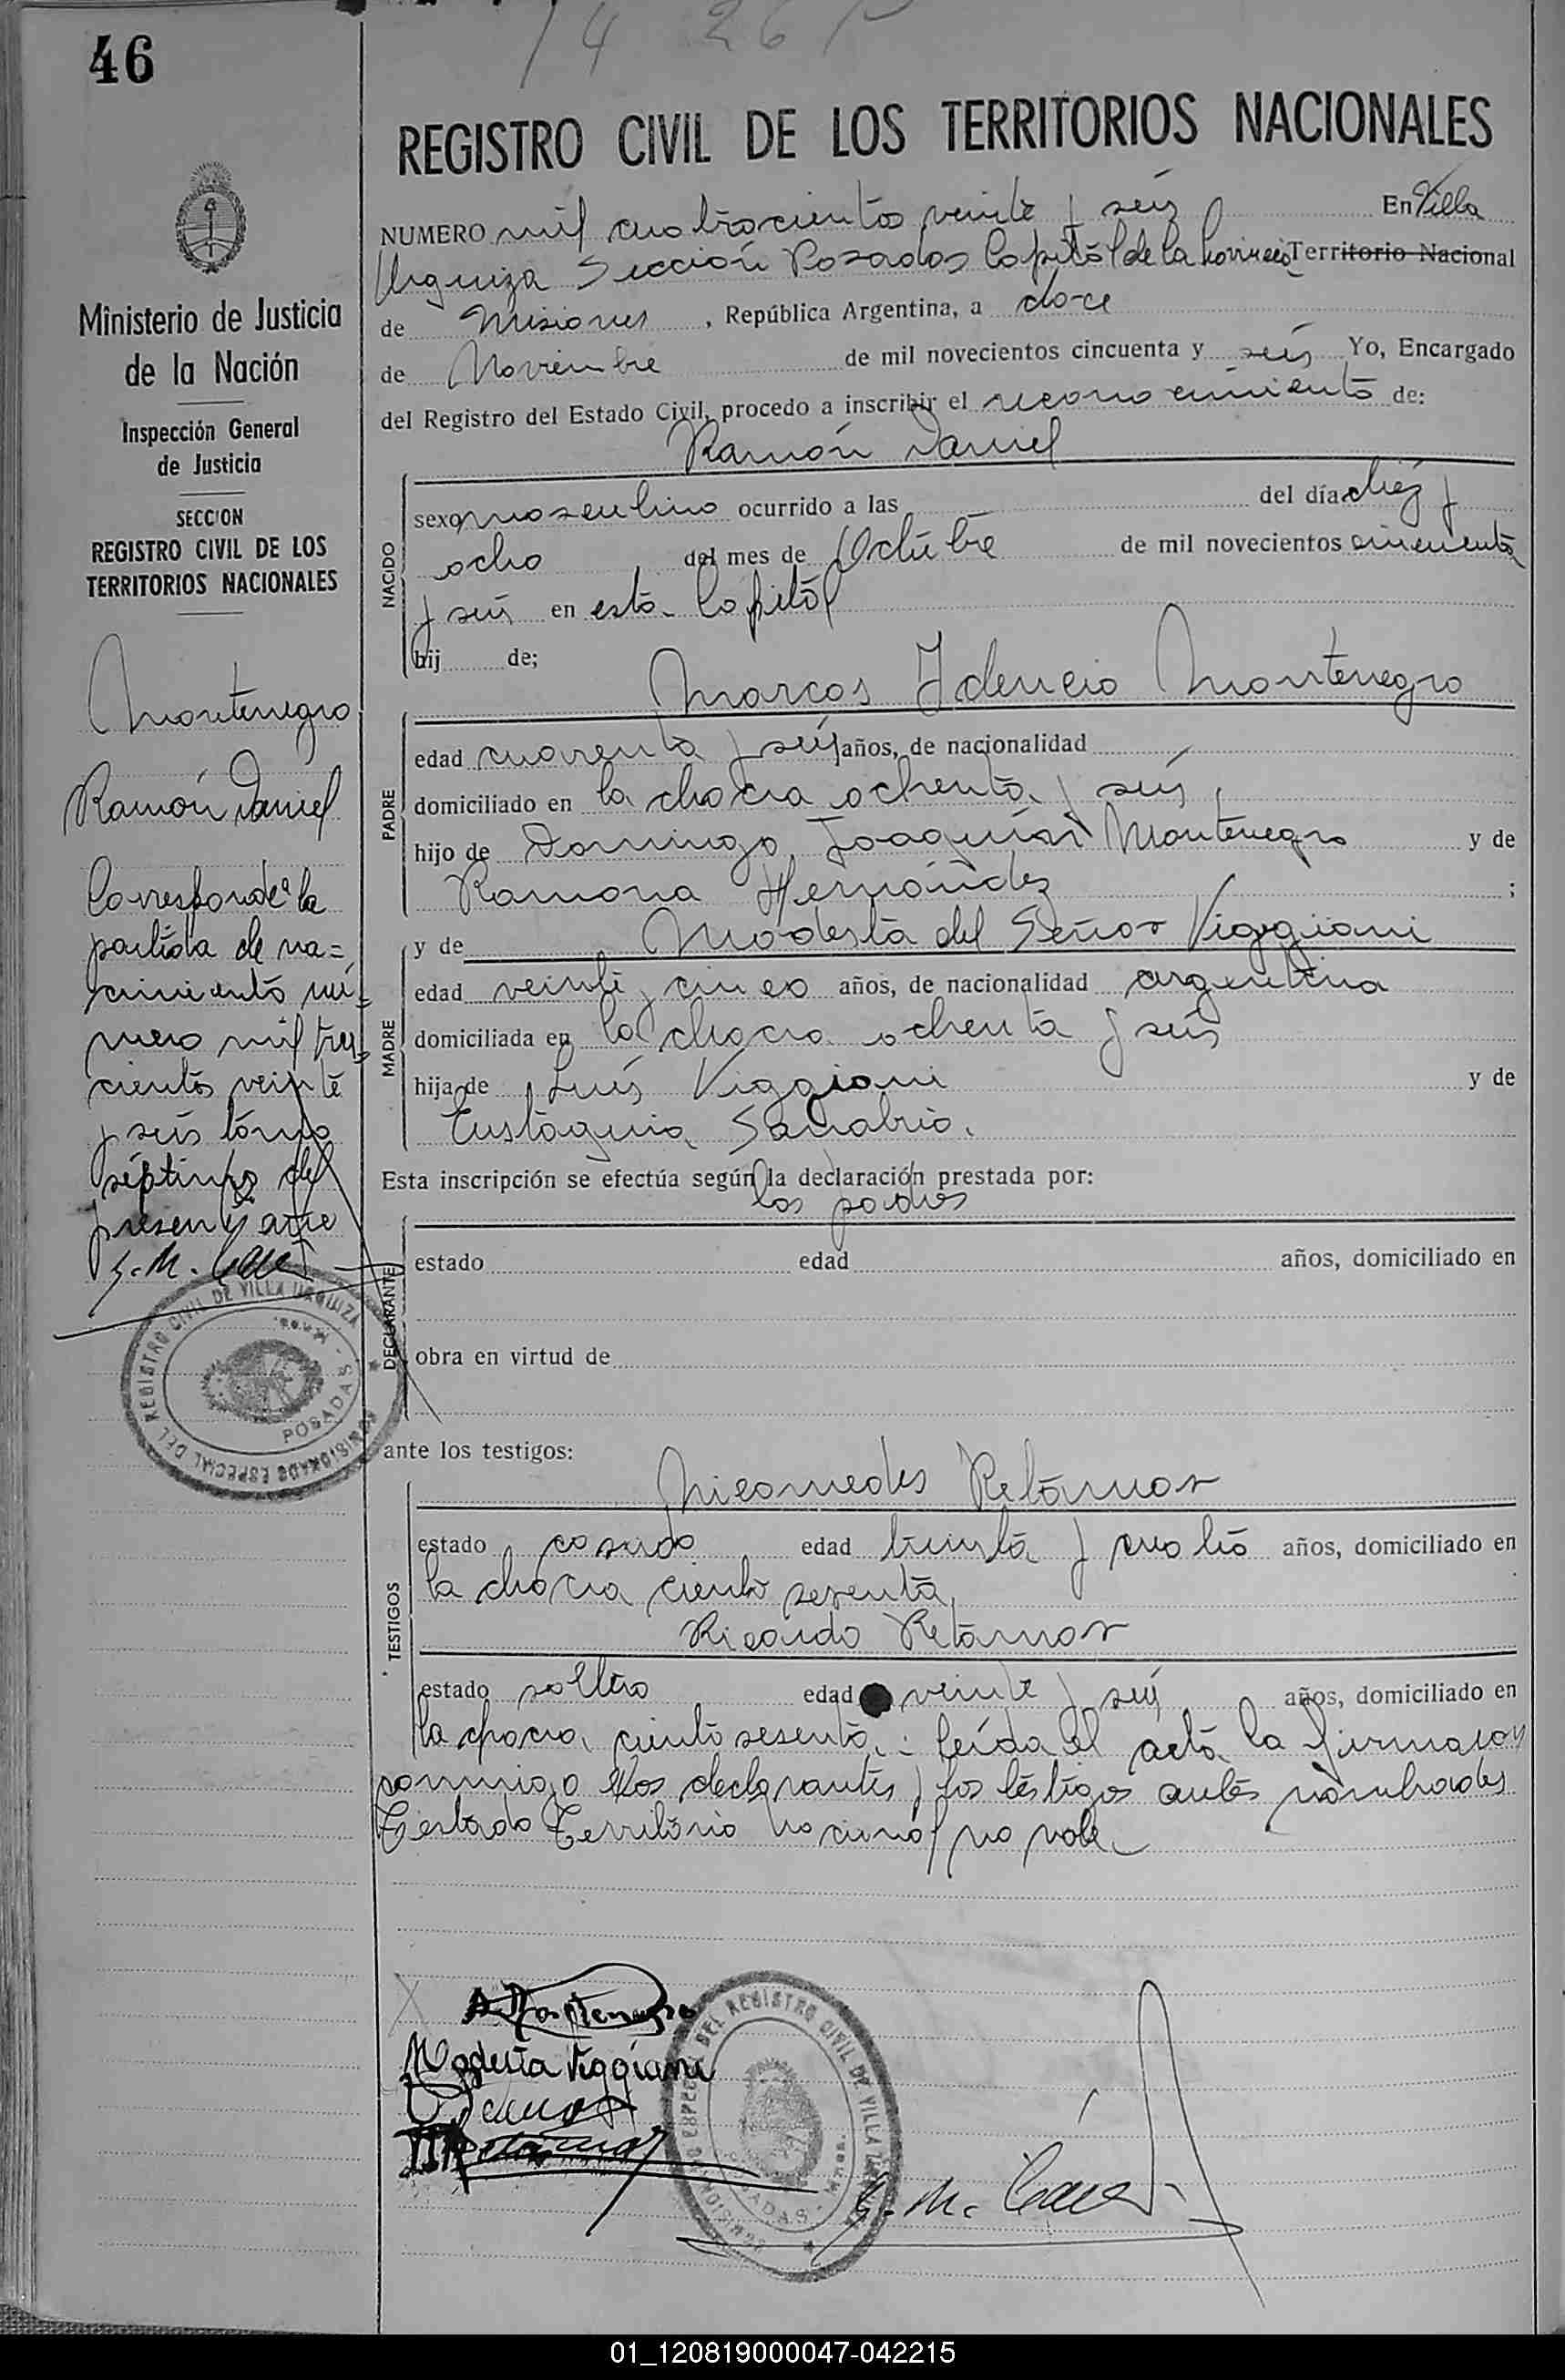 14 26
46
REGISTRO CIVIL DE LOS TERRITORIOS NACIONALES
NUMERO mil cuatrocientos veinte y seis En Villa
Urquiza Sección Posadas Capital de la Provincia Territorio Nacional
de Misiones , República Argentina, a doce
de Noviembre de mil novecientos cincuenta y seis Yo, Encargado
del Registro del Estado Civil, procedo a inscribir el reconocimiento de:
Ramón Daniel
NACIDO
sexo masculino ocurrido a las del día diez y
ocho del mes de Octubre de mil novecientos cincuenta
y seis en esta Capital
hij de;
Marcos Idencio Montenegro
PADRE
edad cuarenta y seis años, de nacionalidad
domiciliado en la chacra ochenta y seis
hijo de Domingo Joaquín Montenegro y de
Ramona Hernández ;
y de Modesta del Señor Viggiani
MADRE
edad veinte y cinco años, de nacionalidad argentina
domiciliada en la chacra ochenta y seis
hija de Luis Viggiani y de
Eustaquia Sanabria.
Esta inscripción se efectúa según la declaración prestada por:
los padres
DECLARANTE
estado edad años, domiciliado en
obra en virtud de
ante los testigos:
Nicomedes Retamar
TESTIGOS
estado casado edad treinta y cuatro años, domiciliado en
la chacra ciento sesenta
Ricardo Retamar
estado soltero edad veinte y seis años, domiciliado en
la chacra ciento sesenta.- Leída el acta la firmaron
conmigo los declarantes y los testigos antes nombrados
Testado Territorio Nacional no vale
Modesta Viggiani
G. M.
COMISIONADO ESPECIAL DEL REGISTRO CIVIL DE VILLA URQUIZA
POSADAS - Mnes.
Ministerio de Justicia
de la Nación
Inspección General
de Justicia
SECCION
REGISTRO CIVIL DE LOS
TERRITORIOS NACIONALES
Montenegro
Ramón Daniel
Corresponde a la
partida de na=
cimiento nú=
mero mil tres=
cientos veinte
y seis tomo
séptimo del
presente año
G. M.
COMISIONADO ESPECIAL DEL REGISTRO CIVIL DE VILLA URQUIZA
POSADAS - Mnes.
01_120819000047-042215